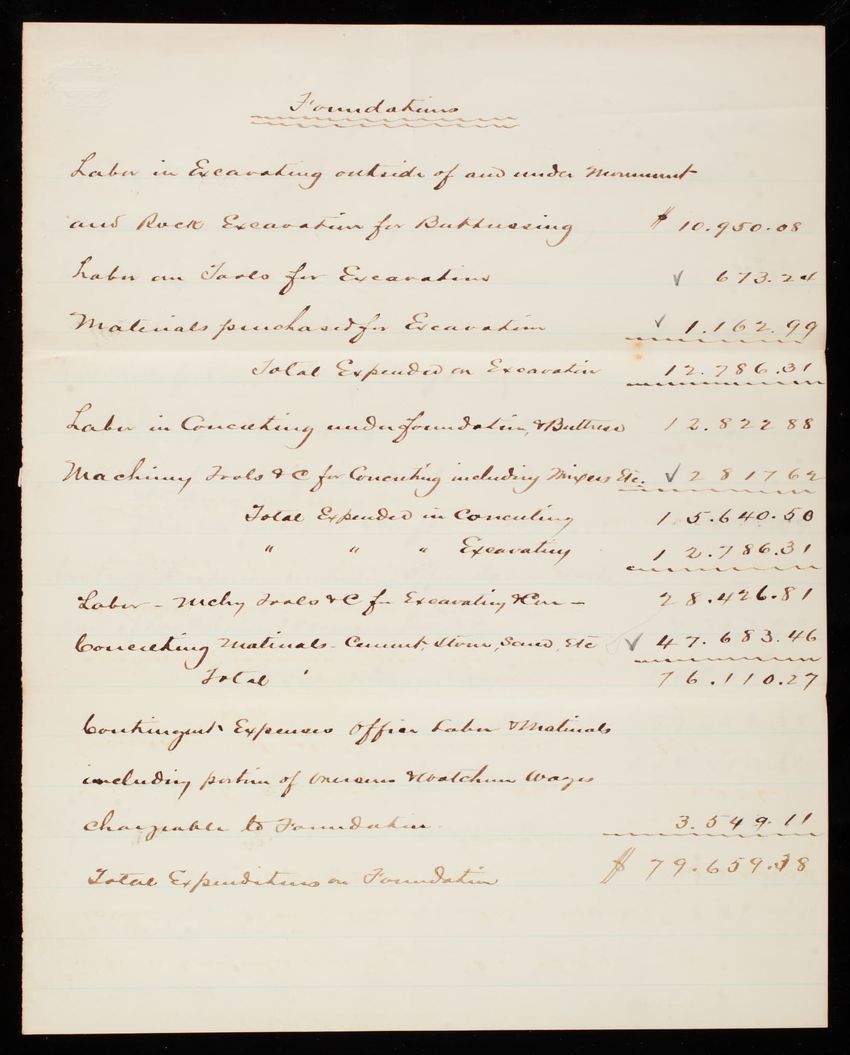 Foundations
Labor in Excavating outside of and under Monument
and Rock Excavation for Buttressing $ 10.950.08
Labor on Tools for Excavation ✓ 673.24
Materials purchased for Excavation ✓ 1.162.99
Total Expended on Excavation 12.786.31
Labor in Concreting under foundation, & Buttress 12.822 88
Machinery Tools & C for Concreting including Mixers Etc. ✓ 2 817 62
Total Expended in Concreting 15.640.50
" " " Excavating 12.786.31
Labor - Mchy Tools & C for Excavating & Con - 28.426.81
Concreting Materials - Cement, Stone, Sand, Etc ✓ 47.683.46
Total 76.110.27
Contingent Expenses Office Labor & Materials
including portion of Overseers & Watchmen Wages
chargeable to Foundation 3.549.11
Total Expenditures on Foundation $ 79.659.38